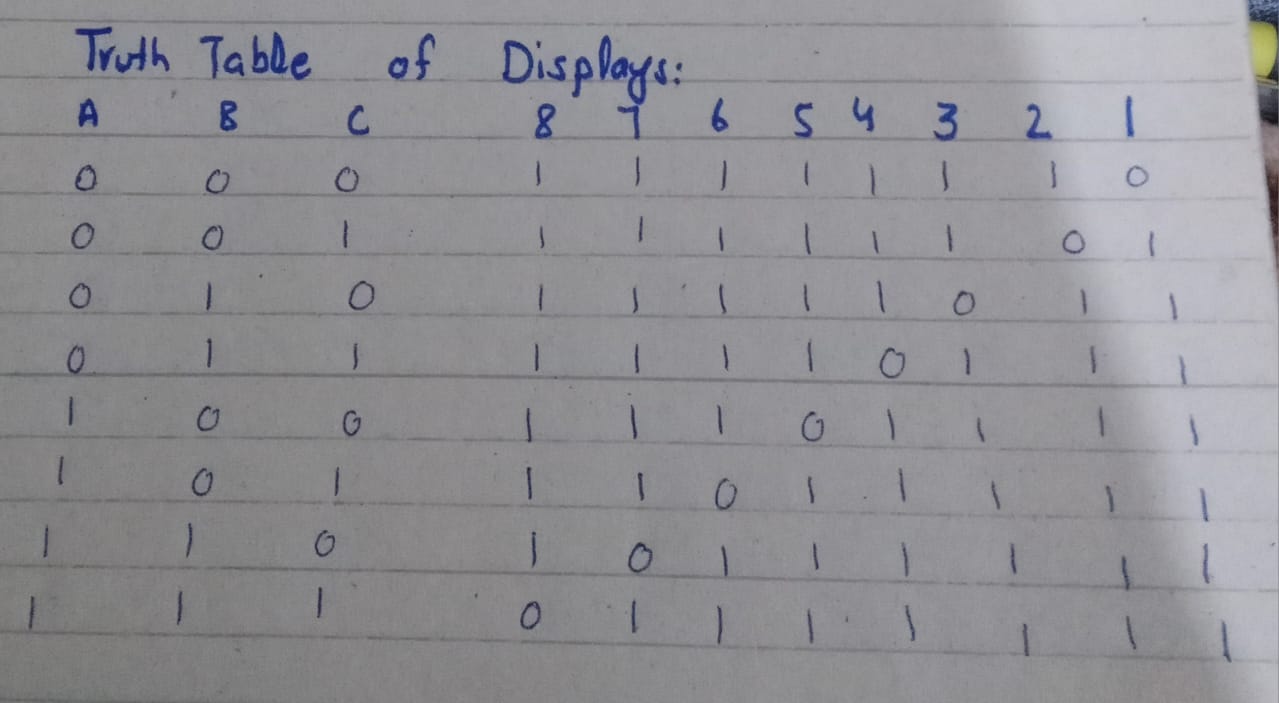 Truth Table of Displays:
A B C 8 7 6 5 4 3 2 1
0 0 0 1 1 1 1 1 1 1 0
0 0 1 1 1 1 1 1 1 0 1
0 1 0 1 1 1 1 1 0 1 1
0 1 1 1 1 1 1 0 1 1 1
1 0 0 1 1 1 0 1 1 1 1
1 0 1 1 1 0 1 1 1 1 1
1 1 0 1 0 1 1 1 1 1 1
1 1 1 0 1 1 1 1 1 1 1